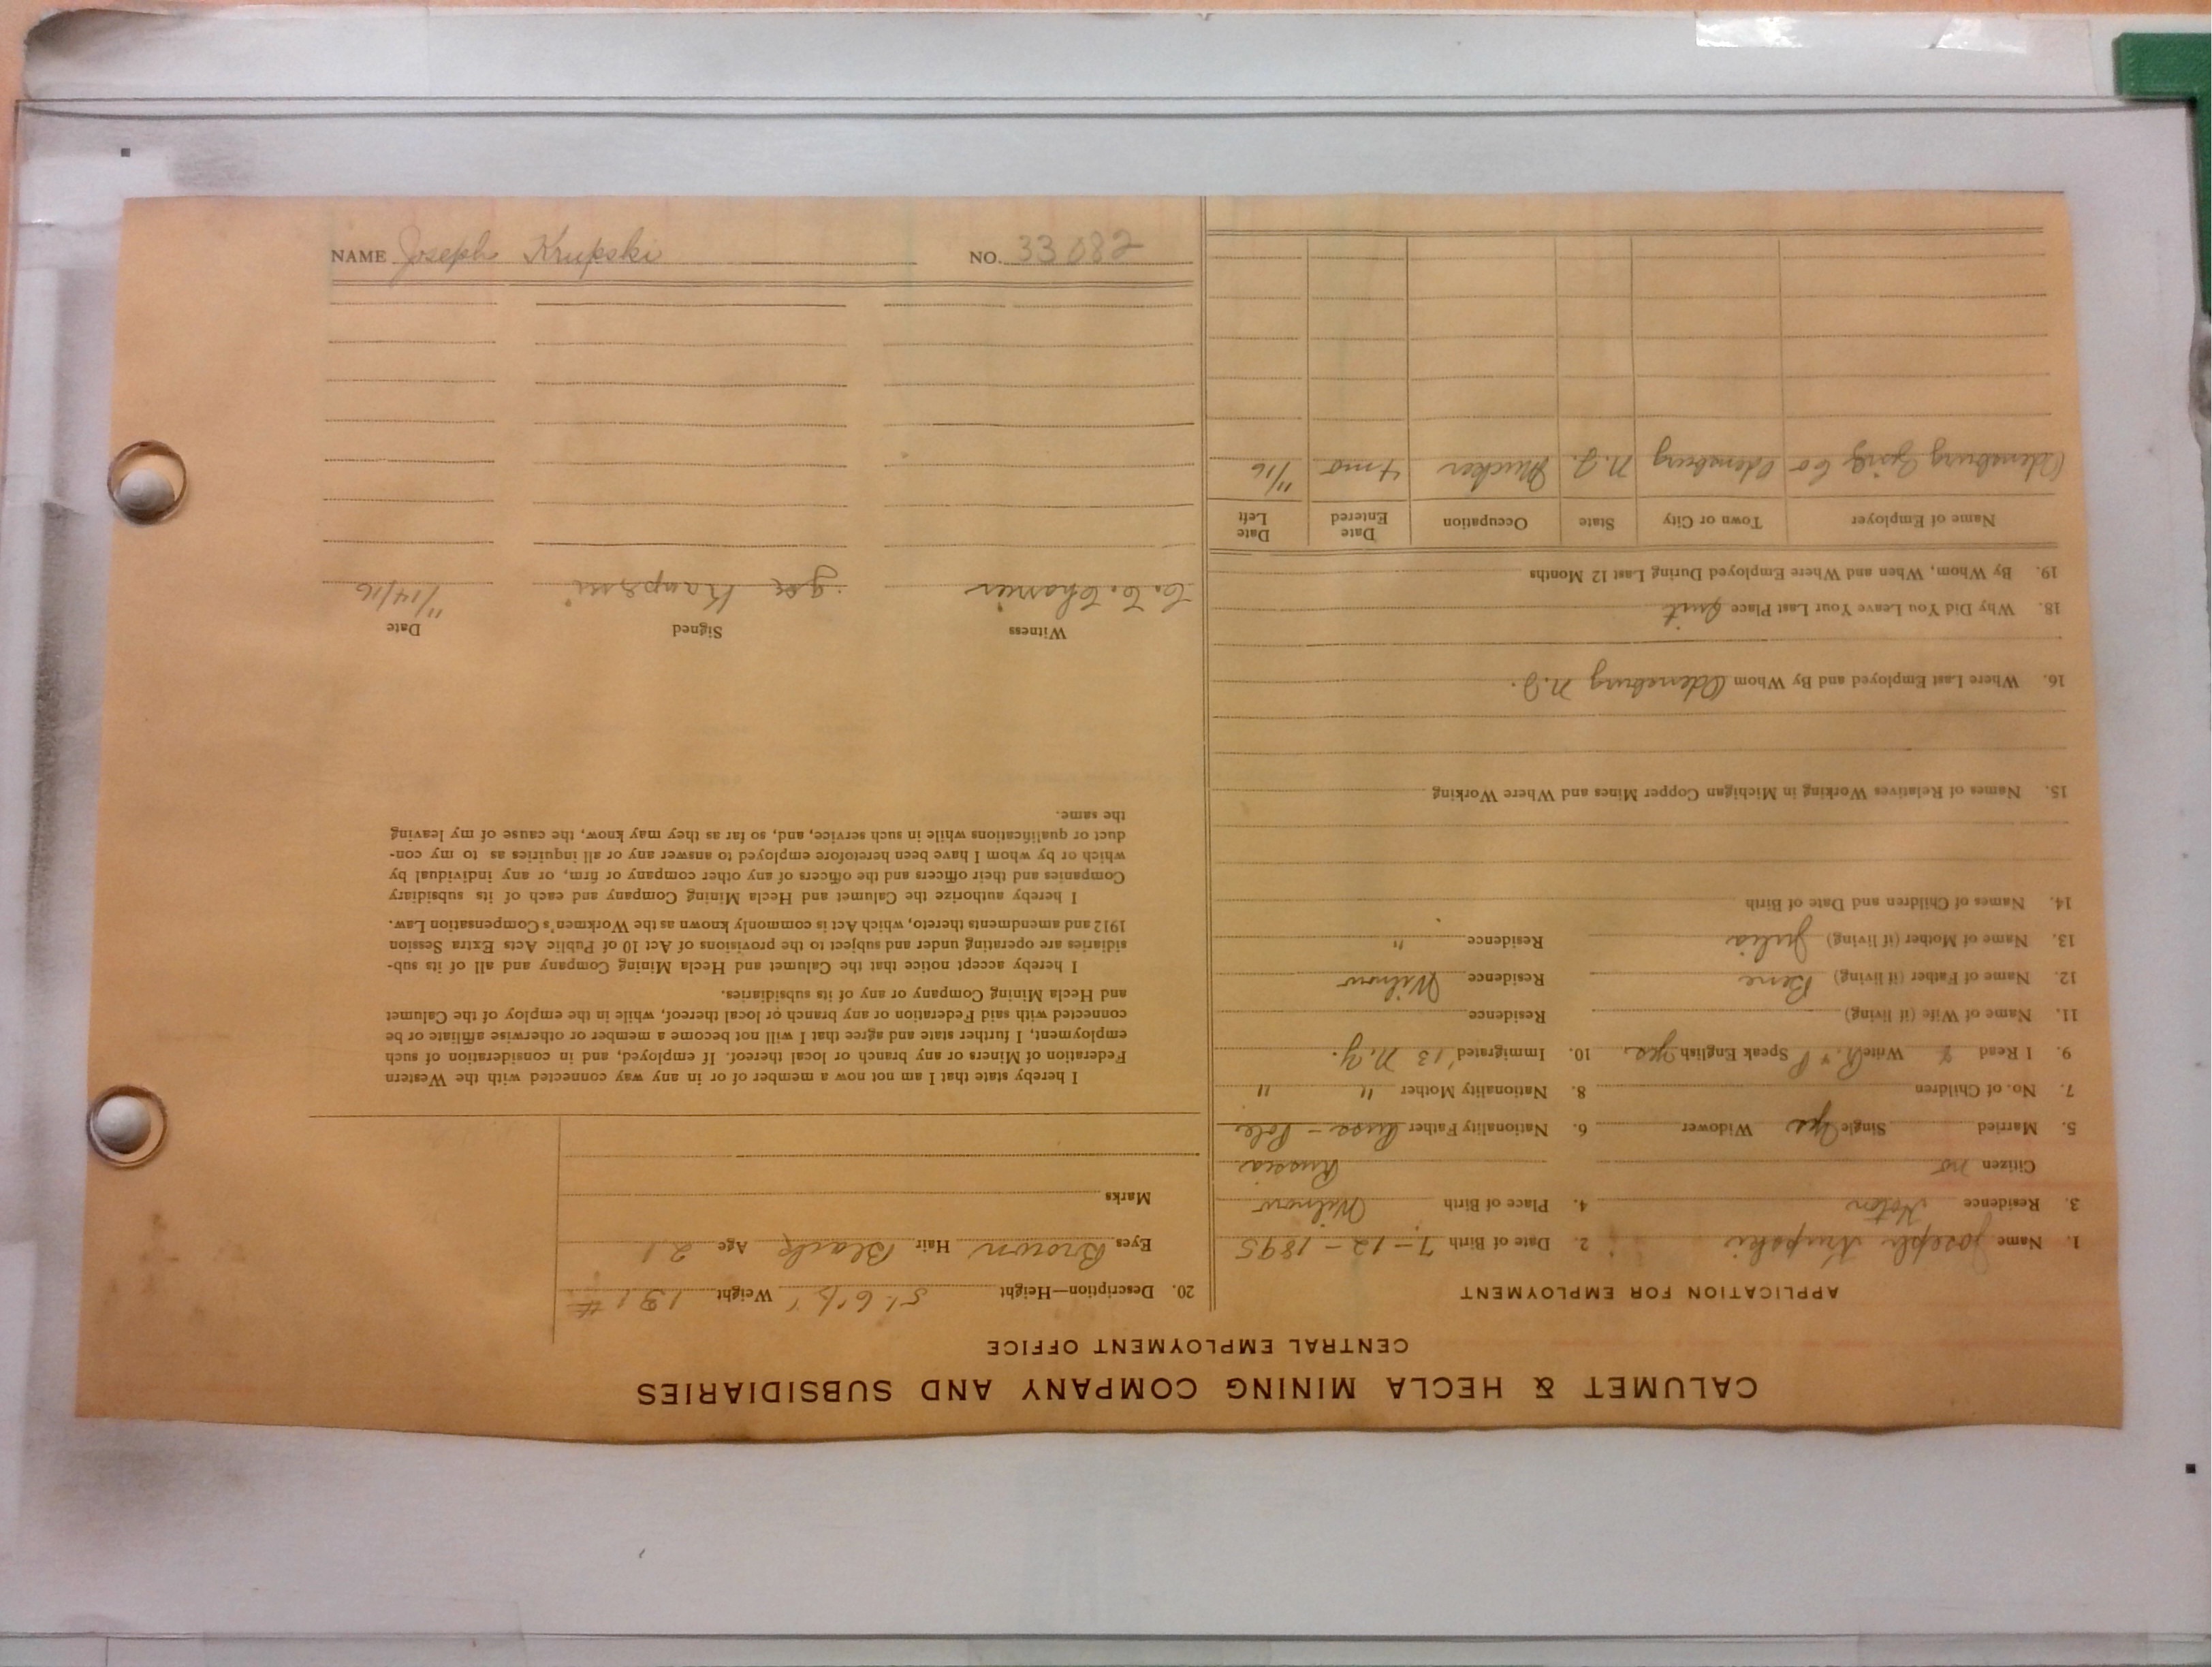 CALUMET & HECLA MINING COMPANY AND SUBSIDIARIES
CENTRAL EMPLOYMENT OFFICE
APPLICATION FOR EMPLOYMENT
1. Name Joseph Krupski 2. Date of Birth 7-12-1895
3. Residence Hoton 4. Place of Birth Wilnow
Citizen no Russia
5. Married Single yes Widower 6. Nationality Father Russ-Pole
7. No. of Children 8. Nationality Mother " "
9. I Read Write R. & P Speak English yes 10. Immigrated '13 N.Y.
11. Name of Wife (if living) Residence
12. Name of Father (if living) Bene Residence Wilnow
13. Name of Mother (if living) Julia Residence "
14. Names of Children and Date of Birth
15. Names of Relatives Working in Michigan Copper Mines and Where Working
16. Where Last Employed and By Whom Odensburg N.J.
18. Why Did You Leave Your Last Place Quit
19. By Whom, When and Where Employed During Last 12 Months
Name of Employer Town or City State Occupation Date Entered Date Left
Odensburg Co Odensburg N.J. Mucker 4 mo 11/16
20. Description—Height 5' 6 1/2" Weight 131 #
Eyes Brown Hair Black Age 21
Marks
I hereby state that I am not now a member of or in any way connected with the Western
Federation of Miners or any branch or local thereof. If employed, and in consideration of such
employment, I further state and agree that I will not become a member or otherwise affiliate or be
connected with said Federation or any branch or local thereof, while in the employ of the Calumet
and Hecla Mining Company or any of its subsidiaries.
I hereby accept notice that the Calumet and Hecla Mining Company and all of its sub-
sidiaries are operating under and subject to the provisions of Act 10 of Public Acts Extra Session
1912 and amendments thereto, which Act is commonly known as the Workmen's Compensation Law.
I hereby authorize the Calumet and Hecla Mining Company and each of its subsidiary
Companies and their officers and the officers of any other company or firm, or any individual by
which or by whom I have been heretofore employed to answer any or all inquiries as to my con-
duct or qualifications while in such service, and, so far as they may know, the cause of my leaving
the same.
Witness Signed Date
Joe 11/14/16
NAME Joseph Krupski NO. 33082